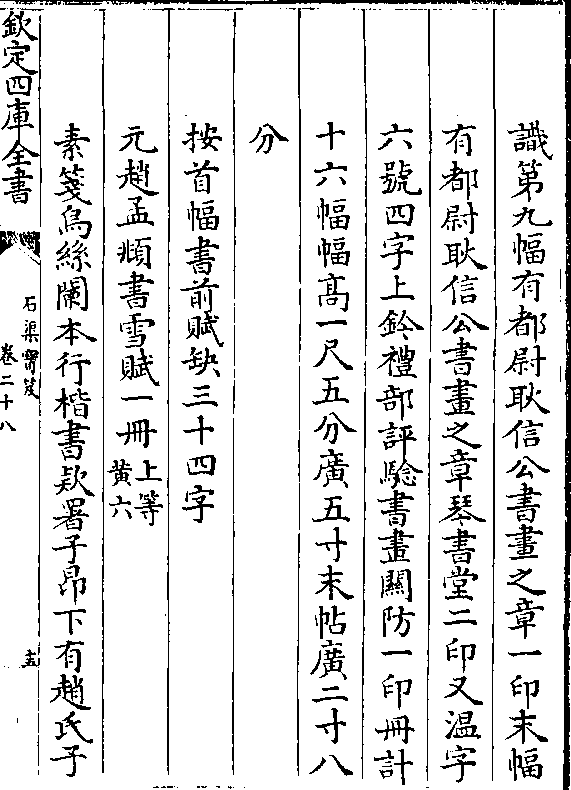 識第九幅有都尉耿信公書畫之章一印末幅
有都尉耿信公書畫之章琴書堂二印又温字
六號四字上鈐禮部評驗書畫關防一印冊計
十六幅幅髙一尺五分廣五寸末帖廣二寸八
分
按首幅書前賦缺三十四字
元趙孟頫書雪賦一冊上等
黄六
素箋烏絲闌本行楷書欵署子昂下有趙氏子
欽定四庫全書
石渠寳笈
卷二十八
十五